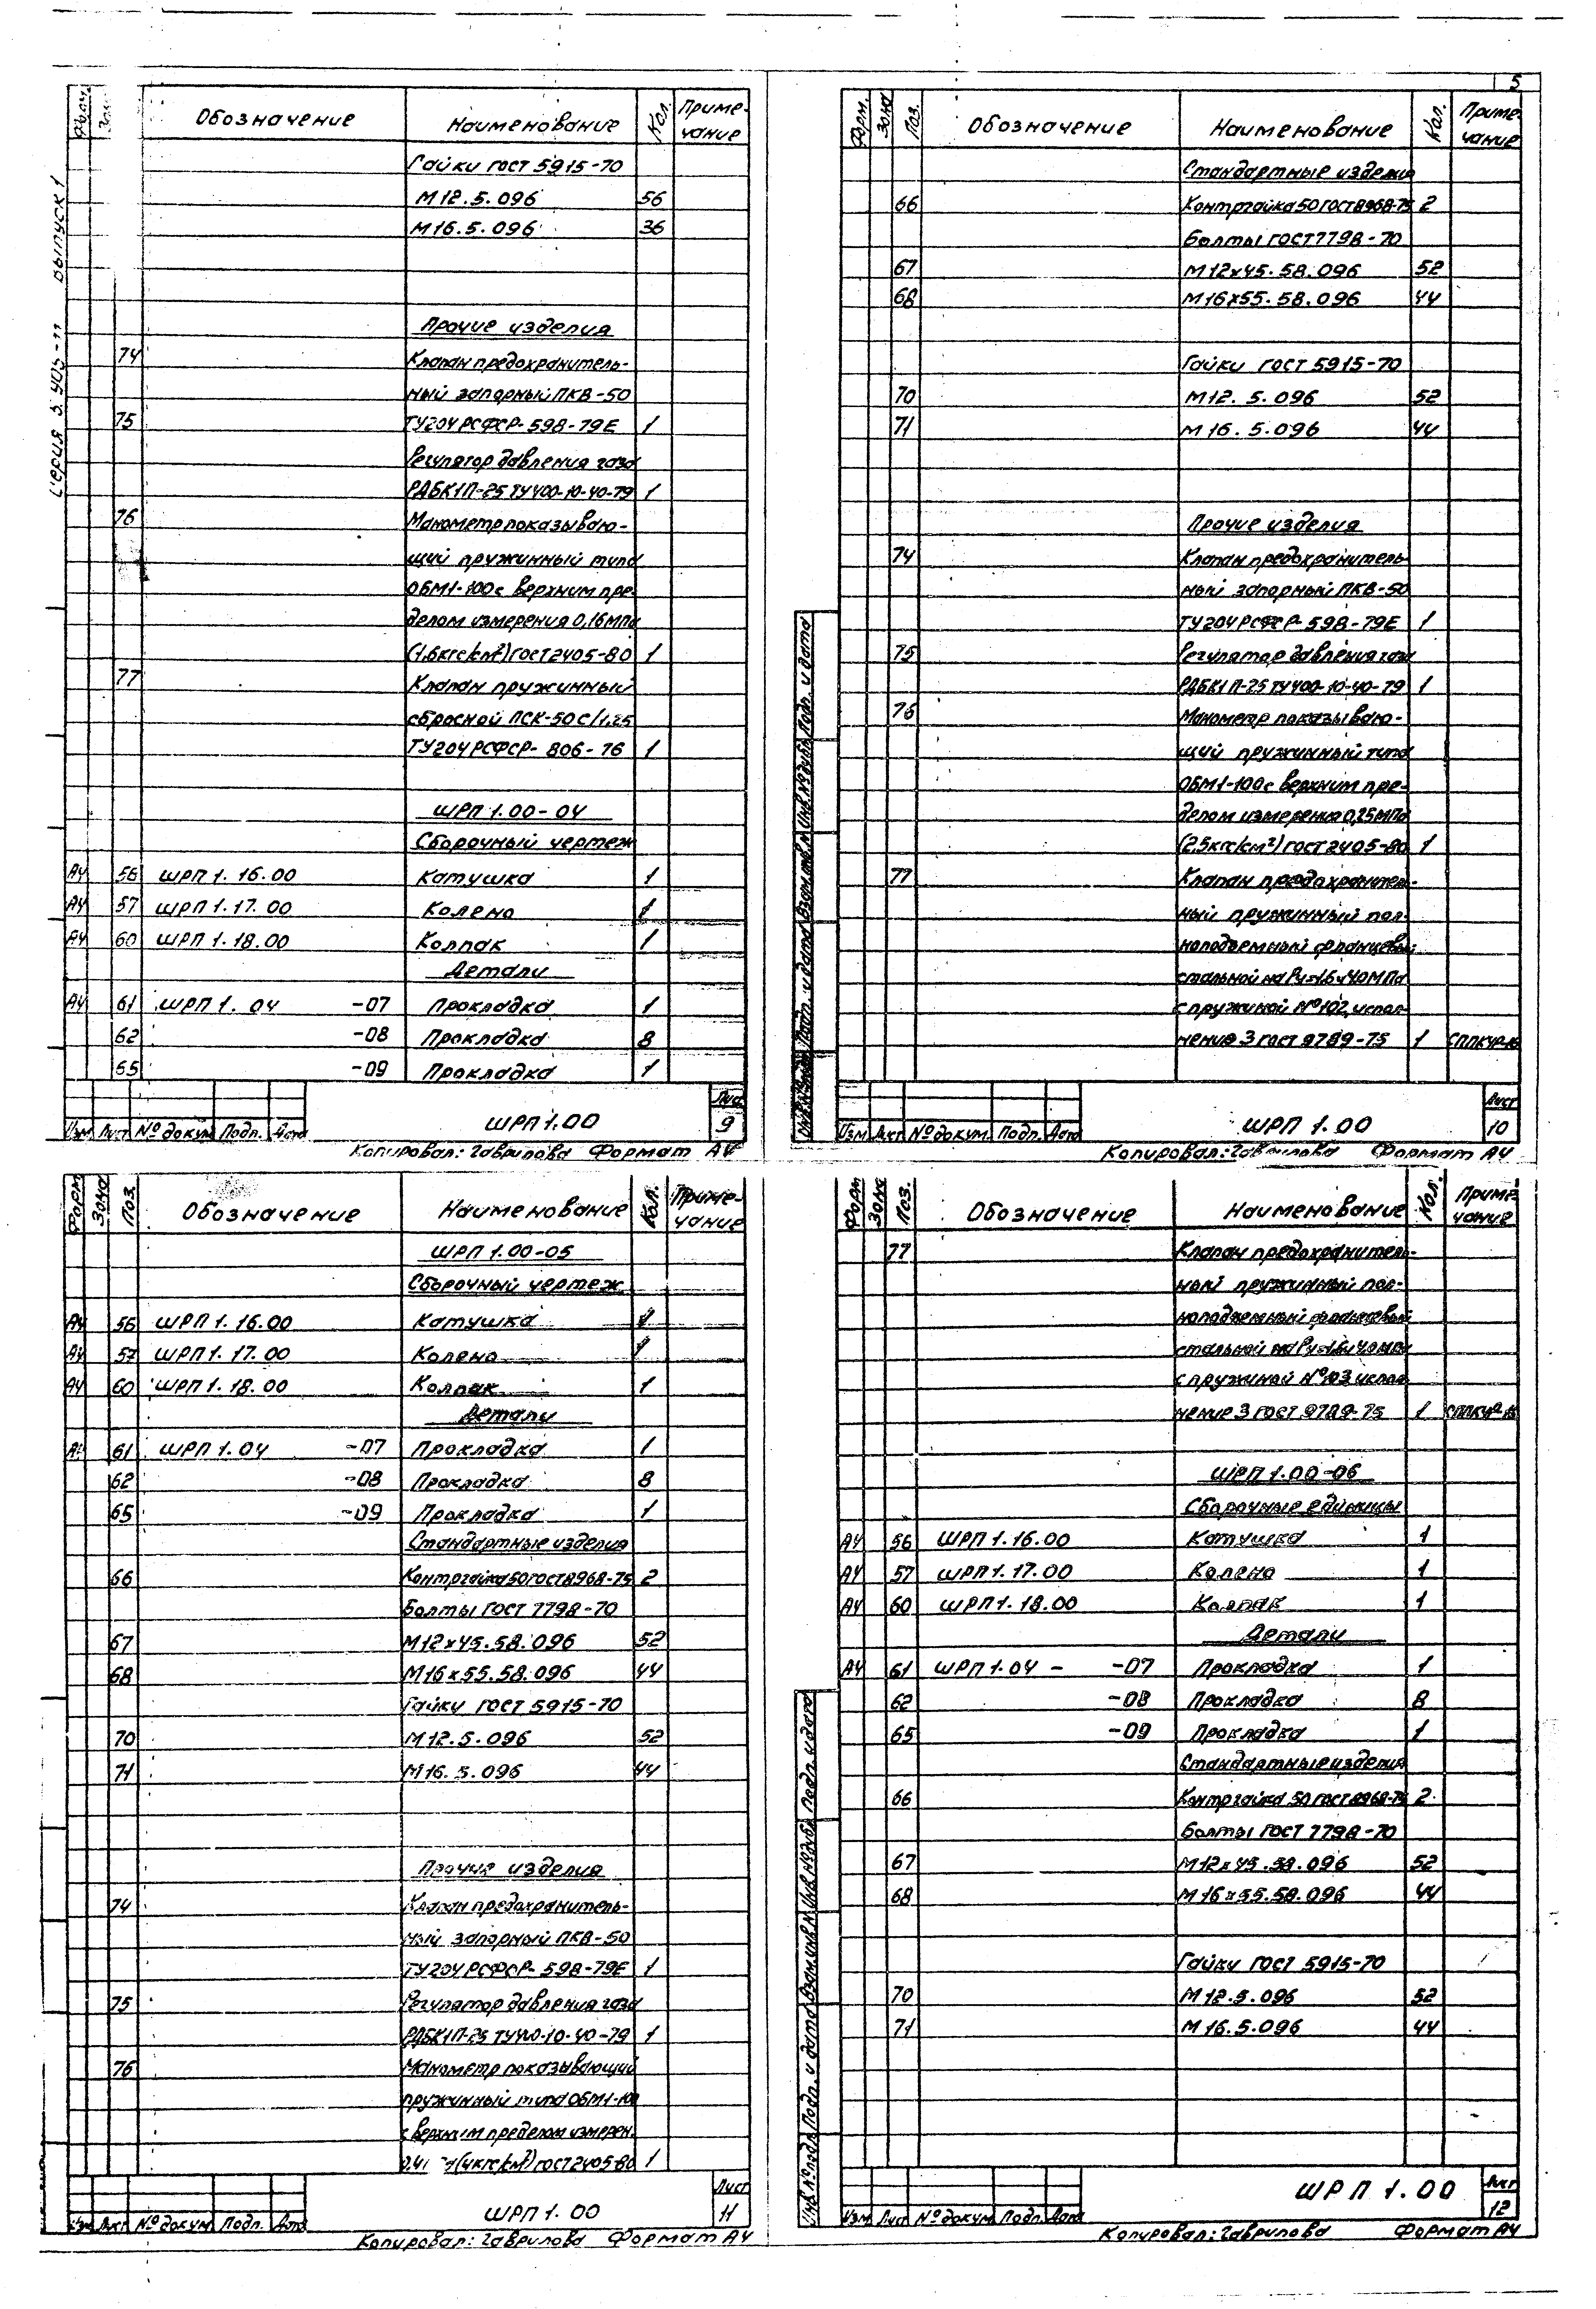 5
Серия 5.905-11 Выпуск 1
Форм. Зона Обозначение Наименование Кол. Приме-
чание
Гайки ГОСТ 5915-70
М12.5.096 56
М16.5.096 36
Прочие изделия
74 Клапан предохранитель-
ный запорный ПКВ-50
75 ТУ204РСФСР-598-79Е 1
Регулятор давления газа
РДБК1П-25 ТУ400-10-40-79 1
76 Манометр показываю-
щий пружинный типа
ОБМ1-100с верхним пре-
делом измерения 0,16МПа
(1,6кгс/см²)ГОСТ2405-80 1
77 Клапан пружинный
сбросной ПСК-50С/1,25
ТУ204РСФСР-806-76 1
ШРП 1.00-04
Сборочный чертеж
А4 56 ШРП 1.16.00 Катушка 1
А4 57 ШРП 1.17.00 Колено 1
А4 60 ШРП 1.18.00 Колпак 1
Детали
А4 61 ШРП 1.04 -07 Прокладка 1
62 -08 Прокладка 8
65 -09 Прокладка 1
ШРП 1.00 Лист
Изм Лист № докум. Подп. Дата 9
Копировал: Гаврилова Формат А4
Форм. Зона Поз. Обозначение Наименование Кол. Приме-
чание
Стандартные изделия
66 Контргайка 50 ГОСТ 8968-75 2
Болты ГОСТ 7798-70
67 М12х45.58.096 52
68 М16х55.58.096 44
Гайки ГОСТ 5915-70
70 М12.5.096 52
71 М16.5.096 44
Прочие изделия
74 Клапан предохранитель-
ный запорный ПКВ-50
ТУ204РСФСР-598-79Е 1
75 Регулятор давления газа
РДБК1П-25 ТУ400-10-40-79 1
76 Манометр показываю-
щий пружинный типа
ОБМ1-100с верхним пре-
делом измерения 0,25МПа
(2,5кгс/см²)ГОСТ 2405-80 1
77 Клапан предохранитель-
ный пружинный пол-
ноподъемный фланцевый
стальной на Ру=1,6и4,0МПа
с пружиной №102, испол-
нение 3 ГОСТ 9789-75 1
Инв.№подл. Подп. и дата Взам.инв.№ Инв.№дубл. Подп. и дата
ШРП 1.00 Лист
Изм Лист № докум. Подп. Дата 10
Копировал: Гаврилова Формат А4
Форм Зона Поз. Обозначение Наименование Кол. Приме-
чание
ШРП 1.00-05
Сборочный чертеж
А4 56 ШРП 1.16.00 Катушка 1
А4 57 ШРП 1.17.00 Колено 1
А4 60 ШРП 1.18.00 Колпак 1
Детали
А4 61 ШРП 1.04 -07 Прокладка 1
62 -08 Прокладка 8
65 -09 Прокладка 1
Стандартные изделия
66 Контргайка 50 ГОСТ 8968-75 2
Болты ГОСТ 7798-70
67 М12х45.58.096 52
68 М16х55.58.096 44
Гайки ГОСТ 5915-70
70 М12.5.096 52
71 М16.5.096 44
Прочие изделия
74 Клапан предохранитель-
ный запорный ПКВ-50
ТУ204РСФСР-598-79Е 1
75 Регулятор давления газа
РДБК1П-25 ТУ400-10-40-79 1
76 Манометр показывающий
пружинный типа ОБМ1-100
с верхним пределом измерен.
(4кгс/см²) ГОСТ 2405-80 1
ШРП 1.00 Лист
Изм Лист № докум Подп. Дата 11
Копировал: Гаврилова Формат А4
Форм Зона Поз. Обозначение Наименование Кол. Приме-
чание
77 Клапан предохранитель-
ный пружинный пол-
ноподъемный фланцевый
стальной на Ру=1,6и4,0МПа
с пружиной №103 испол-
нение 3 ГОСТ 9789-75 1
ШРП 1.00-06
Сборочные единицы
А4 56 ШРП 1.16.00 Катушка 1
А4 57 ШРП 1.17.00 Колено 1
А4 60 ШРП 1.18.00 Колпак 1
Детали
А4 61 ШРП 1.04 - -07 Прокладка 1
62 -08 Прокладка 8
65 -09 Прокладка 1
Стандартные изделия
66 Контргайка 50 ГОСТ 8968-75 2
Болты ГОСТ 7798-70
67 М12х45.58.096 52
68 М16х55.58.096 44
Гайки ГОСТ 5915-70
70 М12.5.096 52
71 М16.5.096 44
Инв.№подл. Подп. и дата Взам.инв.№ Инв.№дубл. Подп. и дата
ШРП 1.00 Лист
Изм Лист № докум. Подп. Дата 12
Копировал: Гаврилова Формат А4